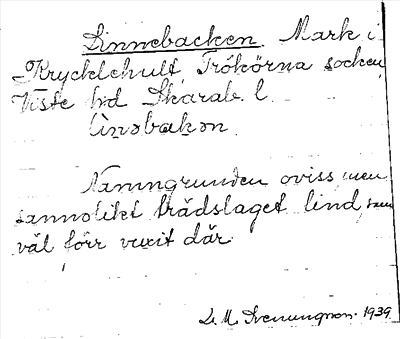 Linnebacken. Mark i
Krycklehult, Trökörna socken,
Viste hd Skarab. l.
linəbakən
Namngrunden oviss, men
sannolikt trädslaget lind, som
väl förr vuxit där.
L. M. Svenungson. 1939